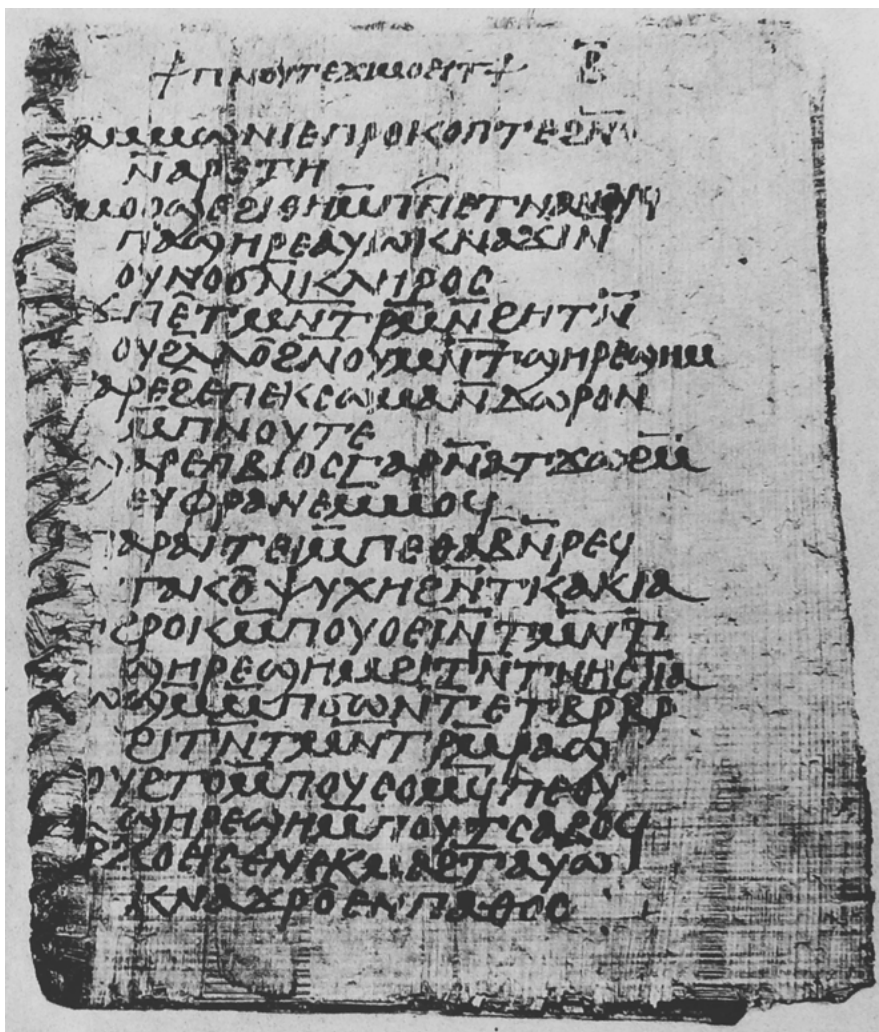 ⲡⲛⲟⲩⲧⲉϫⲓⲙⲟⲉⲓⲧ
ⲁⲙⲙⲱⲛⲓⲉⲡⲣⲟⲕⲟⲡⲧⲉϩⲛ̄
ⲛ̄ⲁⲣⲉⲧⲏ
ⲙⲟⲟϣⲉϩⲓⲑⲏⲙ̄ⲡⲡⲉⲧⲛⲁⲛⲟⲩϥ
ⲡⲁϣⲏⲣⲉⲁⲩⲱⲕⲛⲁϫⲓⲛ
ⲟⲩⲛⲟϭⲛ̄ⲕⲗⲏⲣⲟⲥ
ϫⲡⲉⲧⲙⲛ̄ⲧⲣⲙ̄ⲛ̄ϩⲏⲧⲛ̄
ⲟⲩϩⲗⲗⲟϩⲛ̄ⲟⲩⲙⲛ̄ⲧϣⲏⲣⲉϣⲏⲙ
ϩⲁⲣⲉϩⲉⲡⲉⲕⲥⲱⲙⲁⲛ̄ⲇⲱⲣⲟⲛ
ⲙ̄ⲡⲛⲟⲩⲧⲉ
ⲙⲁⲣⲉⲡⲃⲓⲟⲥⲅⲁⲣⲛ̄ⲁⲧϫⲱϩⲙ̄
ⲉⲩⲫⲣⲁⲛⲉⲙ̄ⲙⲟϥ
ⲡⲁⲣⲁⲓⲧⲉⲓⲙ̄ⲡⲉⲑⲁⲃⲛ̄ⲣⲉϥ
ⲧⲁⲕⲟⲯⲩⲭⲏϩⲛ̄ⲧⲕⲁⲕⲓⲁ
ⲥⲣⲟⲕⲙ̄ⲡⲟⲩⲟⲉⲓⲛ̄ⲧⲙⲛ̄ⲧ
ϣⲏⲣⲉϣⲏⲙϩⲓⲧⲛ̄ⲧⲛⲏⲥⲧⲓⲁ
ⲱϣⲙ̄ⲙ̄ⲡϭⲱⲛⲧ̄ⲉⲧⲃⲣ̄ⲃⲣ̄
ϩⲓⲧⲛ̄ⲧⲙⲛ̄ⲧⲣⲙ̄ⲣⲁϣ
ⲟⲩϩⲧⲟⲙ̄ⲡⲟⲩⲉⲟⲙϥ̄ⲡⲉⲟⲩ
ϣⲏⲣⲉϣⲏⲙⲙ̄ⲡⲟⲩⲧⲥⲁⲃⲟϥ
ⲣ̄ϫⲟⲉⲓⲥ
ⲕⲛⲁϫⲣⲟⲉⲛⲡⲁⲑⲟⲥ